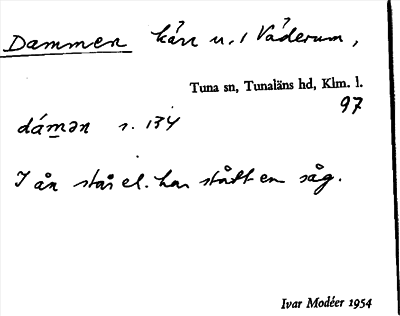 Dammen kärr u. / Våderum,
Tuna sn, Tunaläns hd, Klm. l.
97
dámən s. 134
I ån står el. har stått en såg.
Ivar Modéer 1954